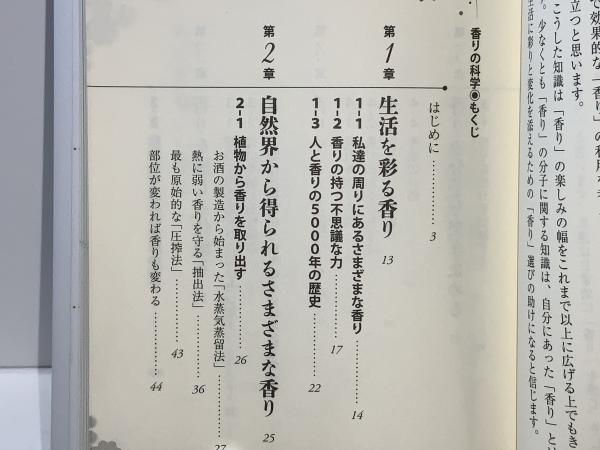 で効果的な「香り」の利用
立つと思います。
こうした知識は「香り」の楽しみの幅をこれまで以上に広げる上でもき
。少なくとも「香り」の分子に関する知識は、自分にあった「香り」と
生活に彩りと変化を添えるための「香り」選びの助けになると信じます。
香りの科学◉もくじ
はじめに……………3
第1章 生活を彩る香り 13
1-1 私達の周りにあるさまざまな香り……………14
1-2 香りの持つ不思議な力……………17
1-3 人と香りの5000年の歴史……………22
第2章 自然界から得られるさまざまな香り 25
2-1 植物から香りを取り出す……………26
お酒の製造から始まった「水蒸気蒸留法」……………27
熱に弱い香りを守る「抽出法」……………36
最も原始的な「圧搾法」……………43
部位が変われば香りも変わる……………44